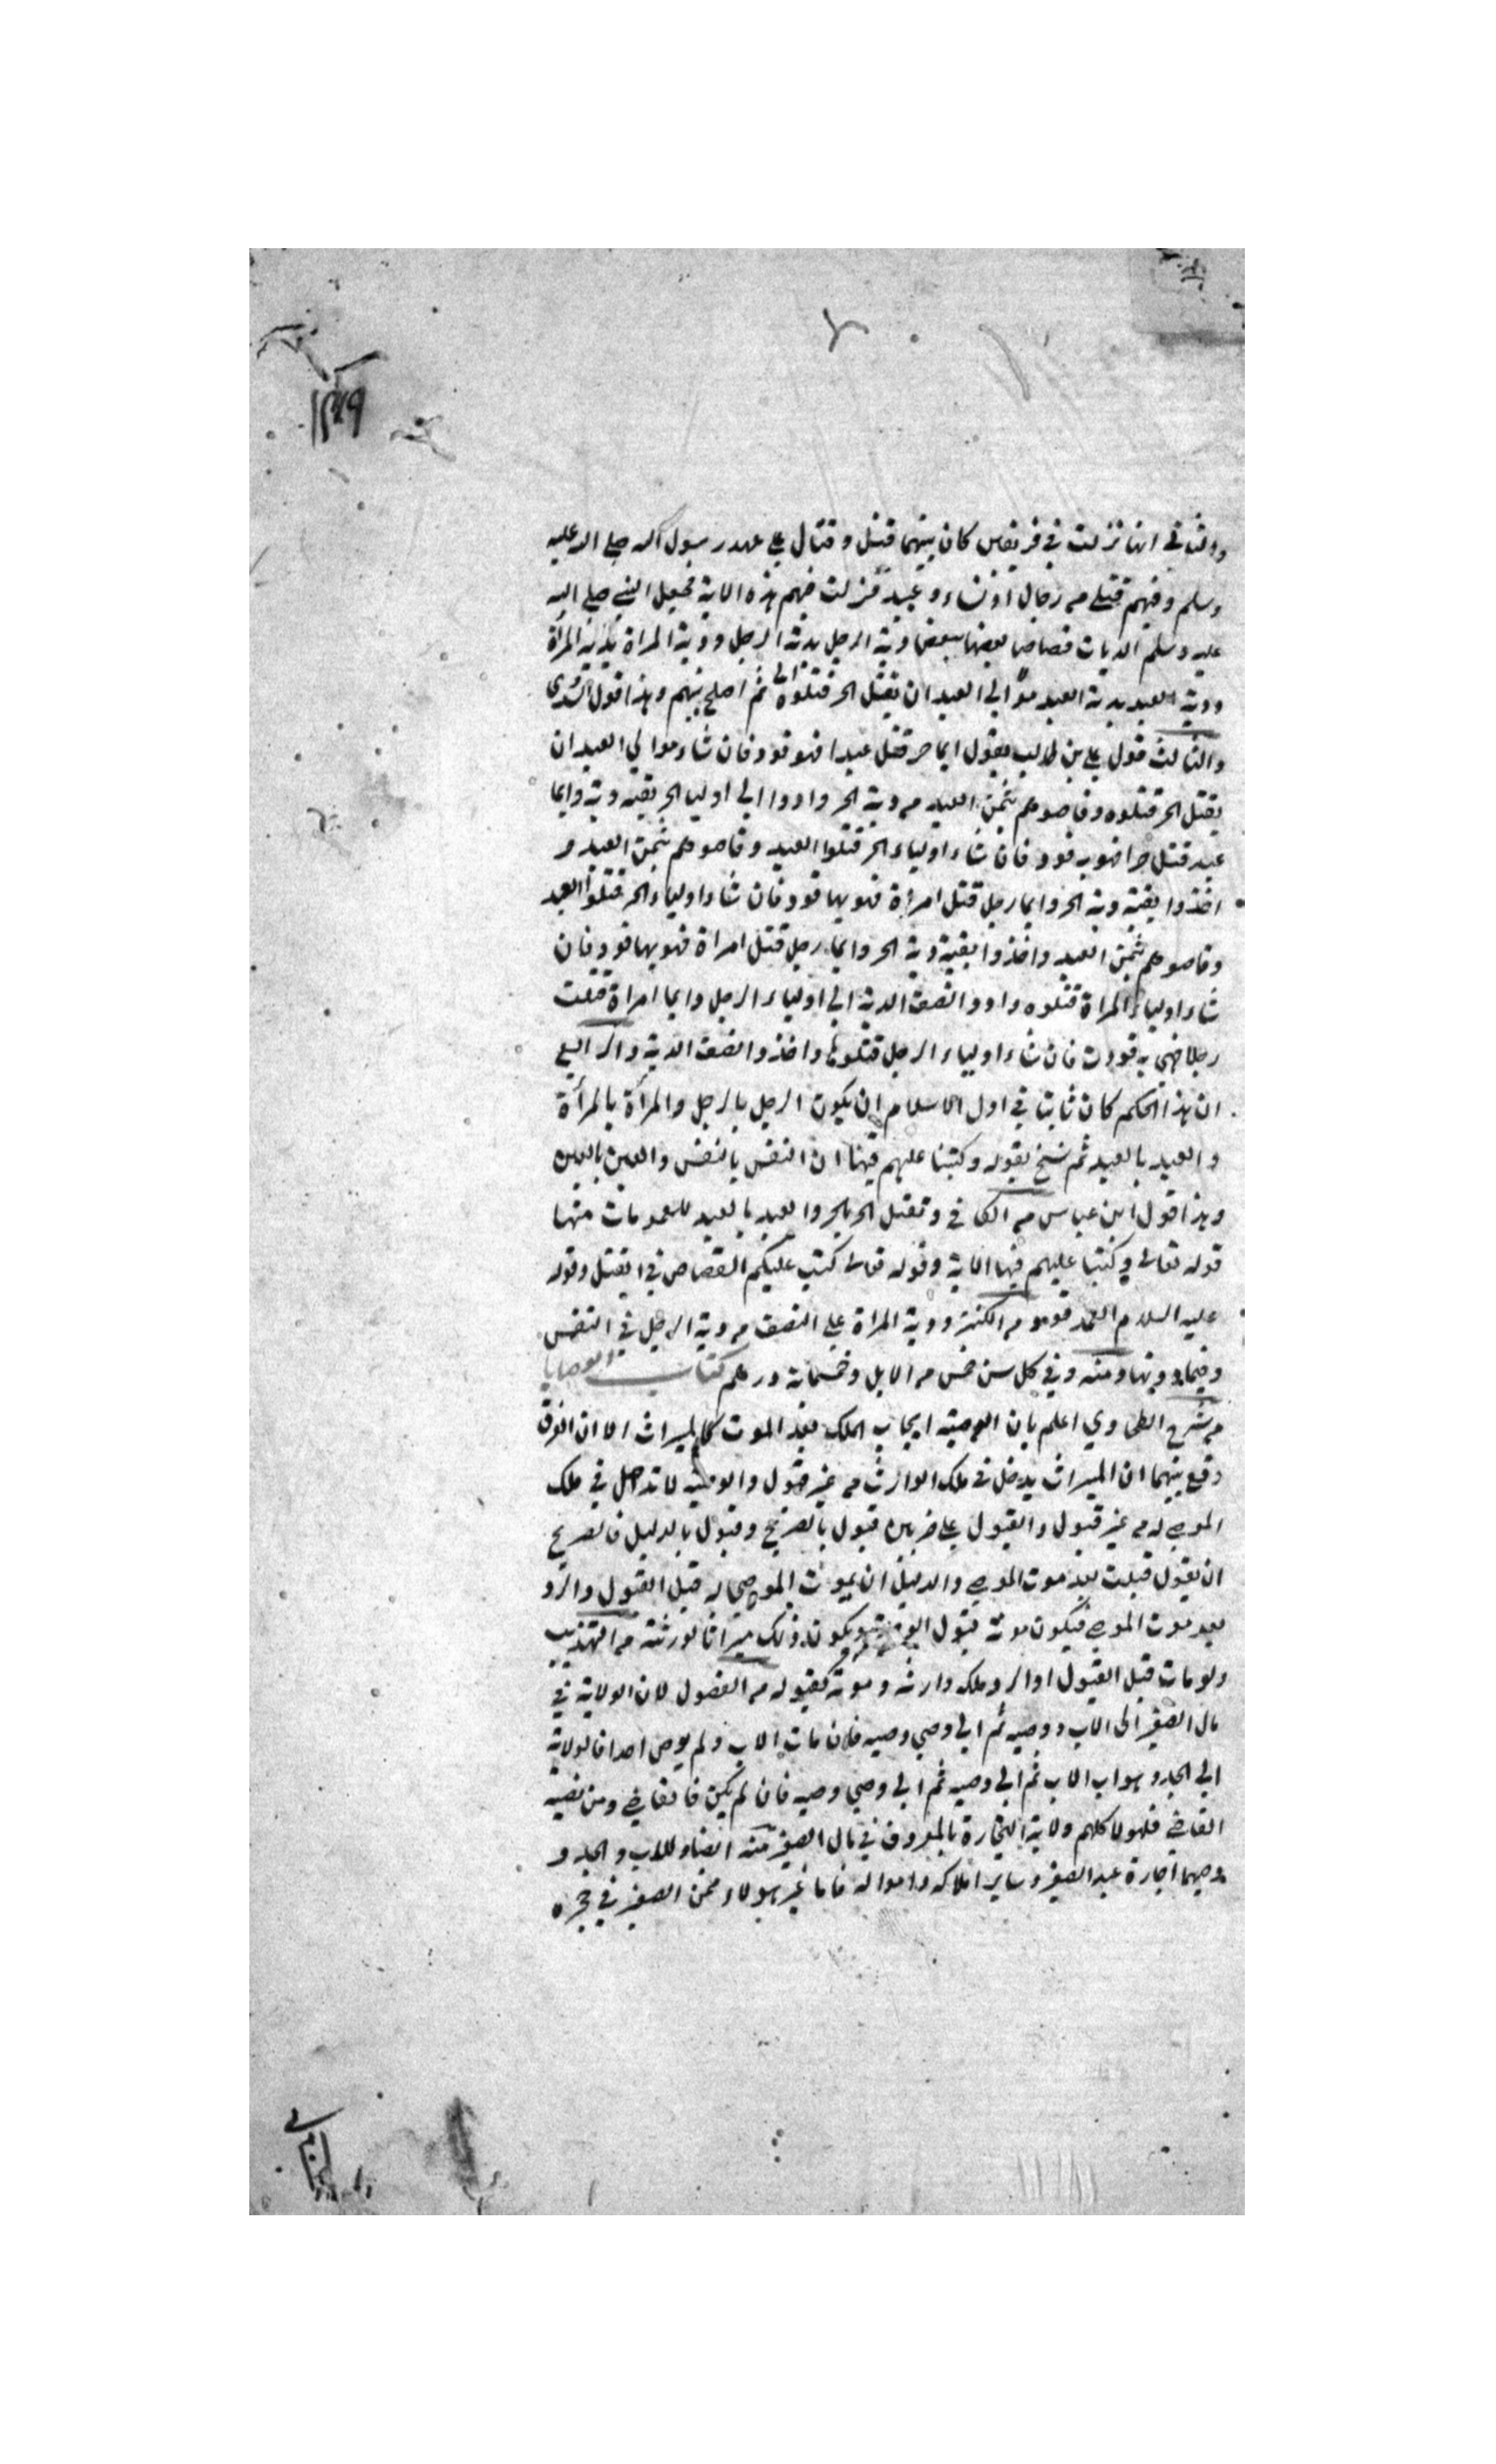 والثاني انها نزلت في فريقين كان بينهما قتل وقتال على عهد رسول الله صلى الله عليه
وسلم وفيهم قتلى من رجال او نساء وعبيد فنزلت فيهم هذه الاية فجعل النبي صلى الله
عليه وسلم الديات قصاصا بعضها ببعض دية الرجل بدية الرجل ودية المراة بدية المرأة
ودية العبد بدية العبد ان يقتل الحر قتلوه ثم اصلح بينهم وهذا قول السدي
والثالث قول علي بن طالب يقول ايما حر قتل عبدا فهو قود فان شاء موالي العبد ان
يقتل الحر قتلوه وقاصوهم بثمن العبد من دية الحر وادوا الى اوليا الحر بقية دية وايما
عبد قتل حرا فهو به قود فان شاء اولياء الحر قتلوا العبد وقاصوهم بثمن العبد و
اخذوا بقية دية الحر وايما رجل قتل امرأة فهو بها قود فان شاء اولياء الحر قتلوا العبد
وقاصوهم بثمن العبد واخذوا بقية دية الحر وايما رجل قتل امراة فهو بها قود فان
شاء اولياء المراة قتلوه وادوا نصف الدية الى اولياء الرجل وايما امراة قتلت
رجلا فهي به قودت فان شاء اولياء الرجل قتلوها واخذوا نصف الدية والرابع
ان هذا الحكم كان ثابتا في اول الاسلام ان يكون الرجل بالرجل والمرأة بالمرأة
والعبد بالعبد ثم نسخ بقوله وكتبنا عليهم فيها ان النفس بالنفس والعين بالعين
وهذا قول ابن عباس من الكافي وتقتل الحر بالحر والعبد بالعبد للعمومات منها
قوله تعالى وكتبنا عليهم فيها الاية وقوله تعالى كتب عليكم القصاص في القتل وقوله
عليه السلام العمد قود من الكنز ودية المراة على النصف من دية الرجل في النفس
وفيما دونها ومنه وفي كل سن خمس من الابل وخمسمائة درهم كتاب الوصايا
من شرح الطحاوي اعلم بان الوصية ايجاب الملك بعد الموت كالميراث الا ان الفرق
وقع بينهما ان الميراث يدخل في ملك الوارث من غير قبول والوصية لا تدخل في ملك
الموصى له من غير قبول والقبول على ضربين قبول بالصريح وقبول بالدليل فالصريح
ان يقول قبلت بعد موت الموصي والدليل ان يموت الموصى له قبل القبول والرد
بعد موت الموصي فيكون موته قبول الوصية ويكون ذلك ميراثا لورثته من التهذيب
ولو مات قبل القبول او الرد ملك وارثه وموته كقبوله من الفصول لان الولاية في
مال الصغير الى الاب ووصيه ثم الى وصي وصيه فان مات الاب ولم يوص احدا فالولاية
الى الجد وهو اب الاب ثم الى وصيه ثم الى وصي وصيه فان لم يكن فالقاضي ومن نصبه
القاضي فلهولا كلهم ولاية التجارة بالمعروف في مال الصغير منه ايضا وللاب والجد و
وصيهما اجارة عبد الصغير وساير املاكه وامواله فاما غير هولاء ممن الصغير في حجره